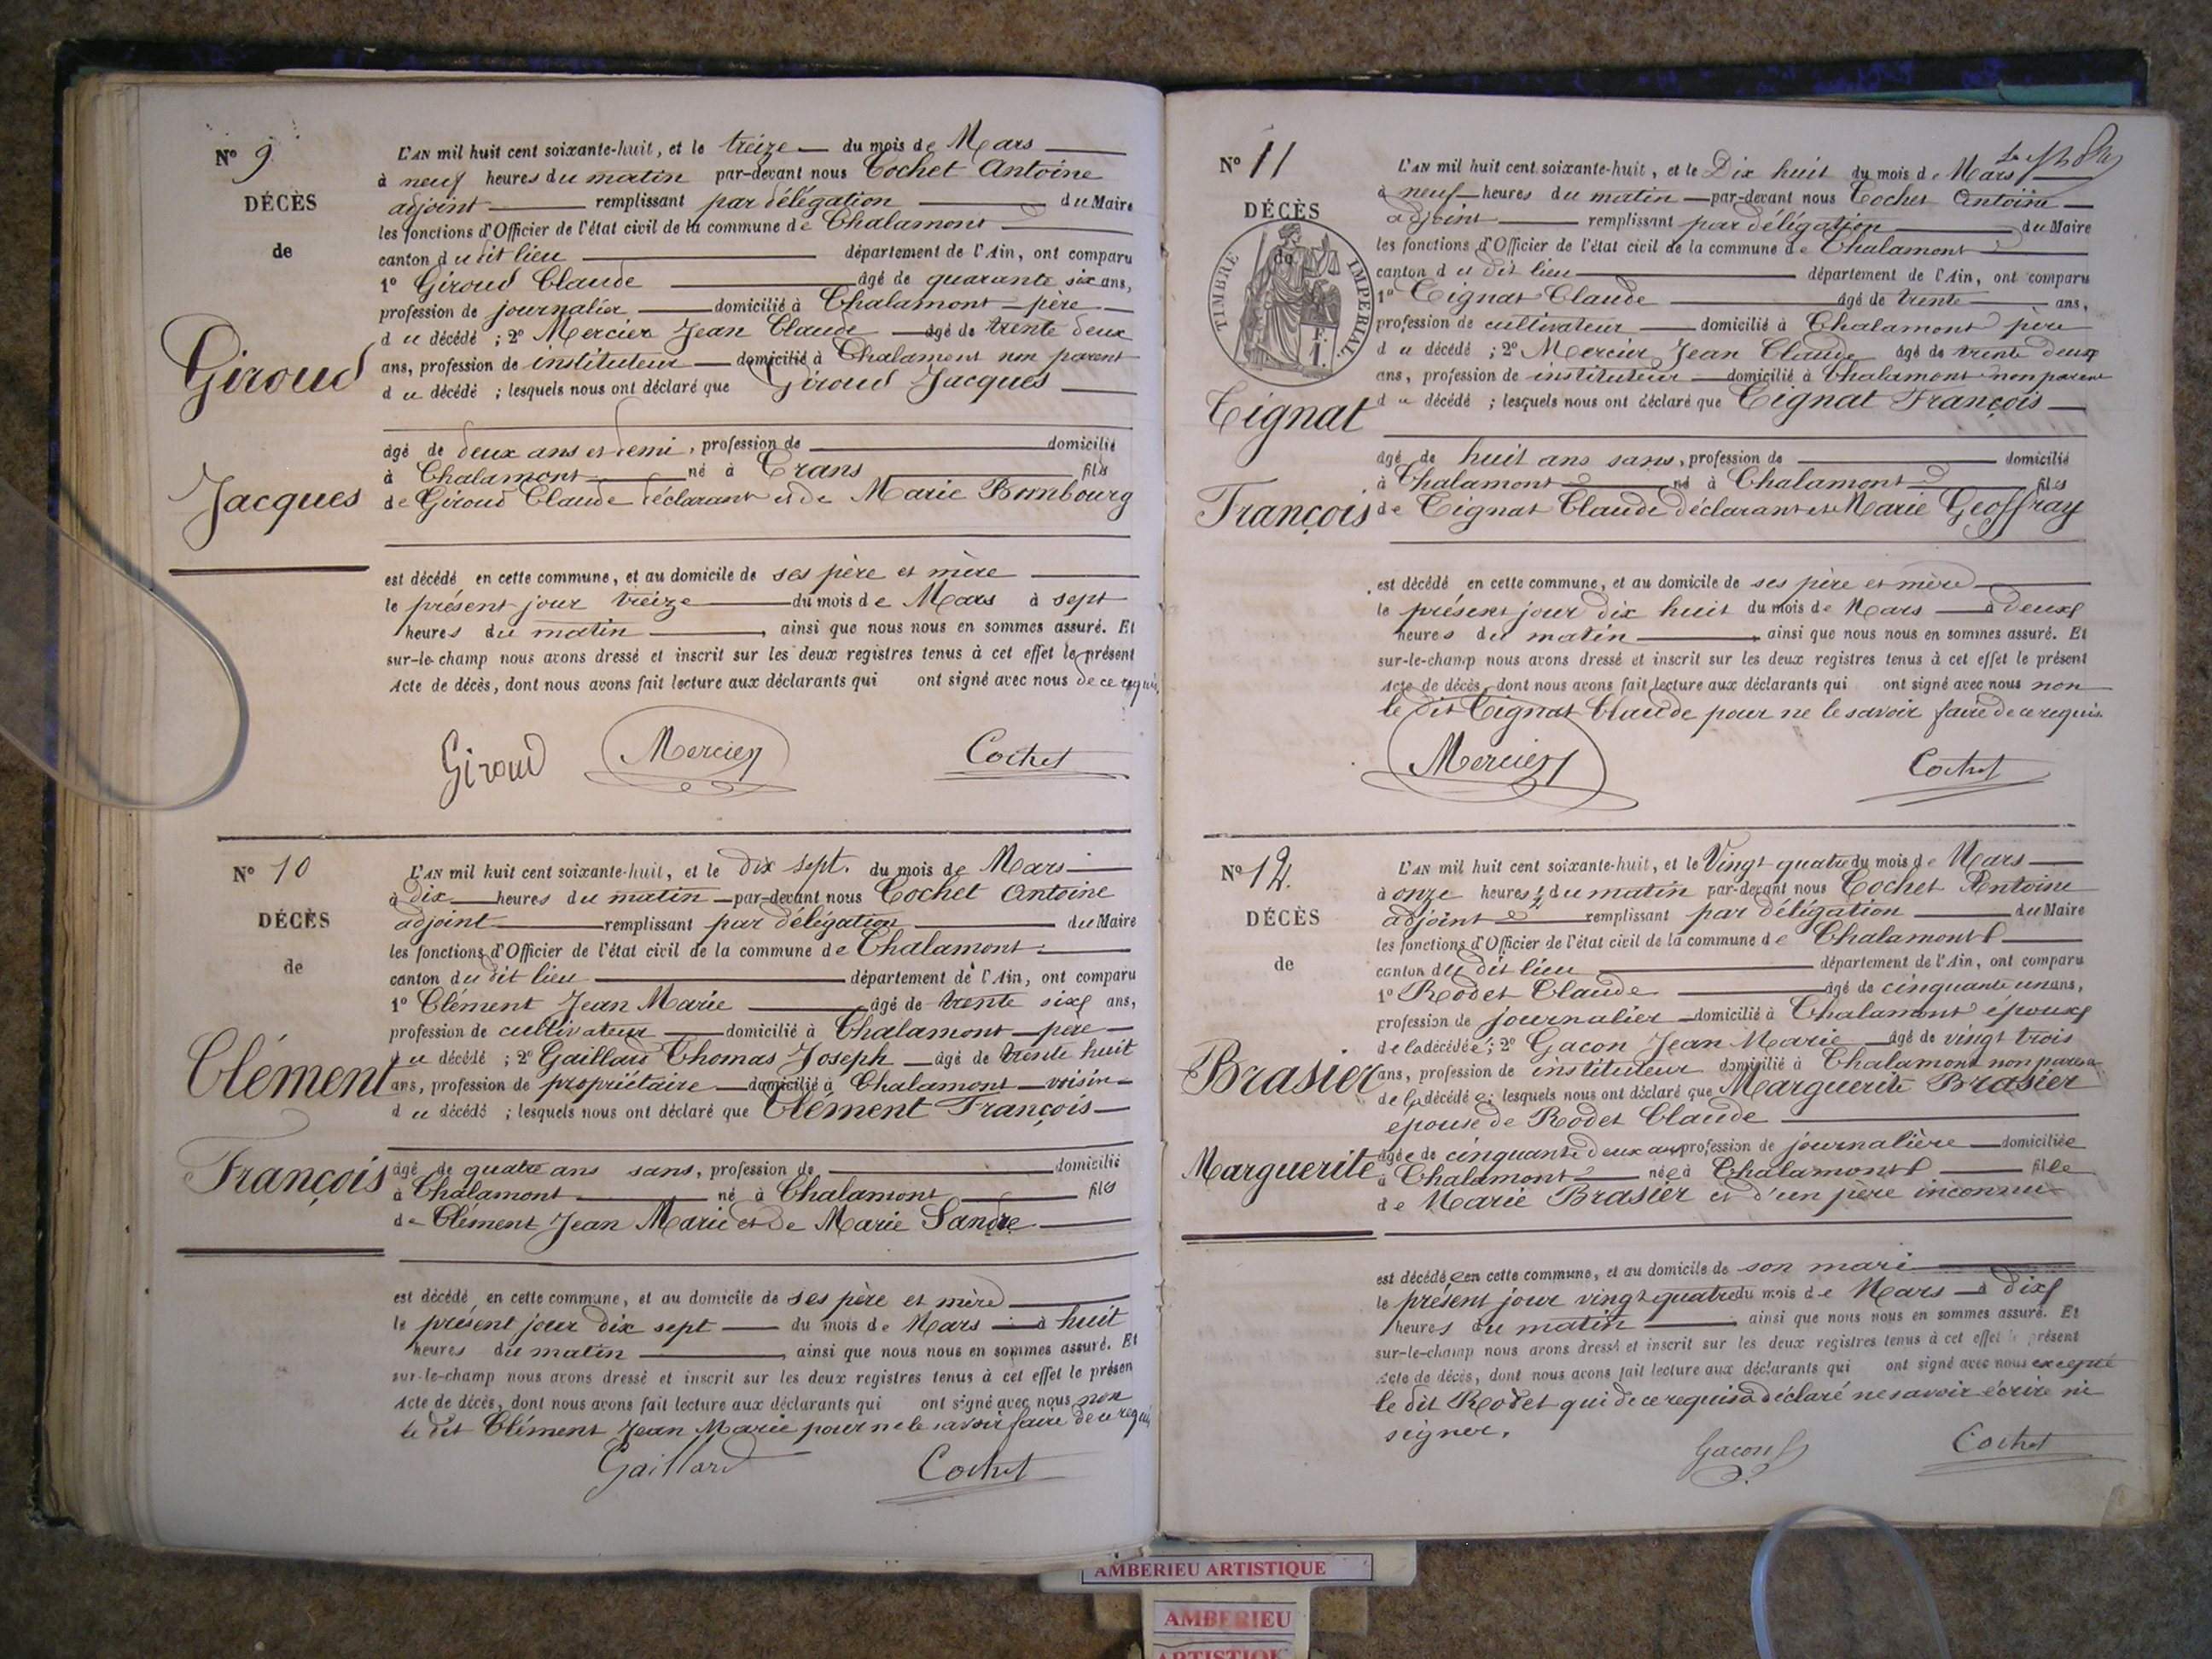 Nº 9
DÉCÈS
de
Giroud
Jacques
L'AN mil huit cent soixante-huit, et le treize du mois de Mars
à neuf heures du matin par-devant nous Cochet Antoine
adjoint remplissant par délégation du Maire
les fonctions d'Officier de l'état civil de la commune de Chalamont
canton du dit lieu département de l'Ain, ont comparu
1º Giroud Claude âgé de quarante six ans,
profession de journalier domicilié à Chalamont père
du décédé ; 2º Mercier Jean Claude âgé de trente deux
ans, profession de instituteur domicilié à Chalamont non parent
du décédé ; lesquels nous ont déclaré que Giroud Jacques
âgé de deux ans et demi, profession de domicilié
à Chalamont né à Crans fils
de Giroud Claude déclarant et de Marie Bombourg
est décédé en cette commune, et au domicile de ses père et mère
le présent jour treize du mois de Mars à sept
heures du matin, ainsi que nous nous en sommes assuré. Et
sur-le-champ nous avons dressé et inscrit sur les deux registres tenus à cet effet le présent
Acte de décès, dont nous avons fait lecture aux déclarants qui ont signé avec nous de ce requis
Giroud Mercier Cochet
Nº 10
DÉCÈS
de
Clément
François
L'AN mil huit cent soixante-huit, et le dix sept. du mois de Mars
à dix heures du matin par-devant nous Cochet Antoine
adjoint remplissant par délégation du Maire
les fonctions d'Officier de l'état civil de la commune de Chalamont
canton du dit lieu département de l'Ain, ont comparu
1º Clément Jean Marie âgé de trente six ans,
profession de cultivateur domicilié à Chalamont père
du décédé ; 2º Gaillard Thomas Joseph âgé de trente huit
ans, profession de propriétaire domicilié à Chalamont voisin
du décédé ; lesquels nous ont déclaré que Clément François
âgé de quatre ans sans, profession de domicilié
à Chalamont né à Chalamont fils
de Clément Jean Marie et de Marie Sandre
est décédé en cette commune, et au domicile de ses père et mère
le présent jour dix sept du mois de Mars à huit
heures du matin, ainsi que nous nous en sommes assuré. Et
sur-le-champ nous avons dressé et inscrit sur les deux registres tenus à cet effet le présen
Acte de décès, dont nous avons fait lecture aux déclarants qui ont signé avec nous non
le dit Clément Jean Marie pour ne le savoir faire de ce requis
Gaillard Cochet
Nº 11
DÉCÈS
de
TIMBRE IMPÉRIAL
Tignat
François
L'AN mil huit cent soixante-huit, et le Dix huit du mois de Mars
à neuf heures du matin par-devant nous Cochet Antoine
adjoint remplissant par délégation du Maire
les fonctions d'Officier de l'état civil de la commune de Chalamont
canton du dit lieu département de l'Ain, ont comparu
1º Tignat Claude âgé de trente ans,
profession de cultivateur domicilié à Chalamont père
du décédé ; 2º Mercier Jean Claude âgé de trente deux
ans, profession de instituteur domicilié à Chalamont non parent
du décédé ; lesquels nous ont déclaré que Tignat François
âgé de huit ans sans, profession de domicilié
à Chalamont né à Chalamont fils
de Tignat Claude déclarant et Marie Geoffray
est décédé en cette commune, et au domicile de ses père et mère
le présent jour dix huit du mois de Mars à deux
heures du matin, ainsi que nous nous en sommes assuré. Et
sur-le-champ nous avons dressé et inscrit sur les deux registres tenus à cet effet le présent
Acte de décès, dont nous avons fait lecture aux déclarants qui ont signé avec nous non
le dit Tignat Claude pour ne le savoir faire de ce requis.
Mercier Cochet
Nº 12.
DÉCÈS
de
Brasier
Marguerite
L'AN mil huit cent soixante-huit, et le Vingt quatre du mois de Mars
à onze heures ½ du matin par-devant nous Cochet Antoine
adjoint remplissant par délégation du Maire
les fonctions d'Officier de l'état civil de la commune de Chalamont
canton du dit lieu département de l'Ain, ont comparu
1º Rodet Claude âgé de cinquante un ans,
profession de journalier domicilié à Chalamont époux
de la décédée ; 2º Gacon Jean Marie âgé de vingt trois
ans, profession de instituteur domicilié à Chalamont non parent
de la décédée ; lesquels nous ont déclaré que Marguerite Brasier
épouse de Rodet Claude
âgée de cinquante deux ans profession de journalière domiciliée
à Chalamont née à Chalamont fille
de Marie Brasier et d'un père inconnu
est décédée en cette commune, et au domicile de son mari
le présent jour vingt quatre du mois de Mars à dix
heures du matin ainsi que nous nous en sommes assuré. Et
sur-le-champ nous avons dressé et inscrit sur les deux registres tenus à cet effet le présent
Acte de décès, dont nous avons fait lecture aux déclarants qui ont signé avec nous excepté
le dit Rodet qui de ce requis a déclaré ne savoir écrire ni
signer.
Gacon Cochet
AMBERIEU ARTISTIQUE
AMBERIEU
ARTISTIQUE